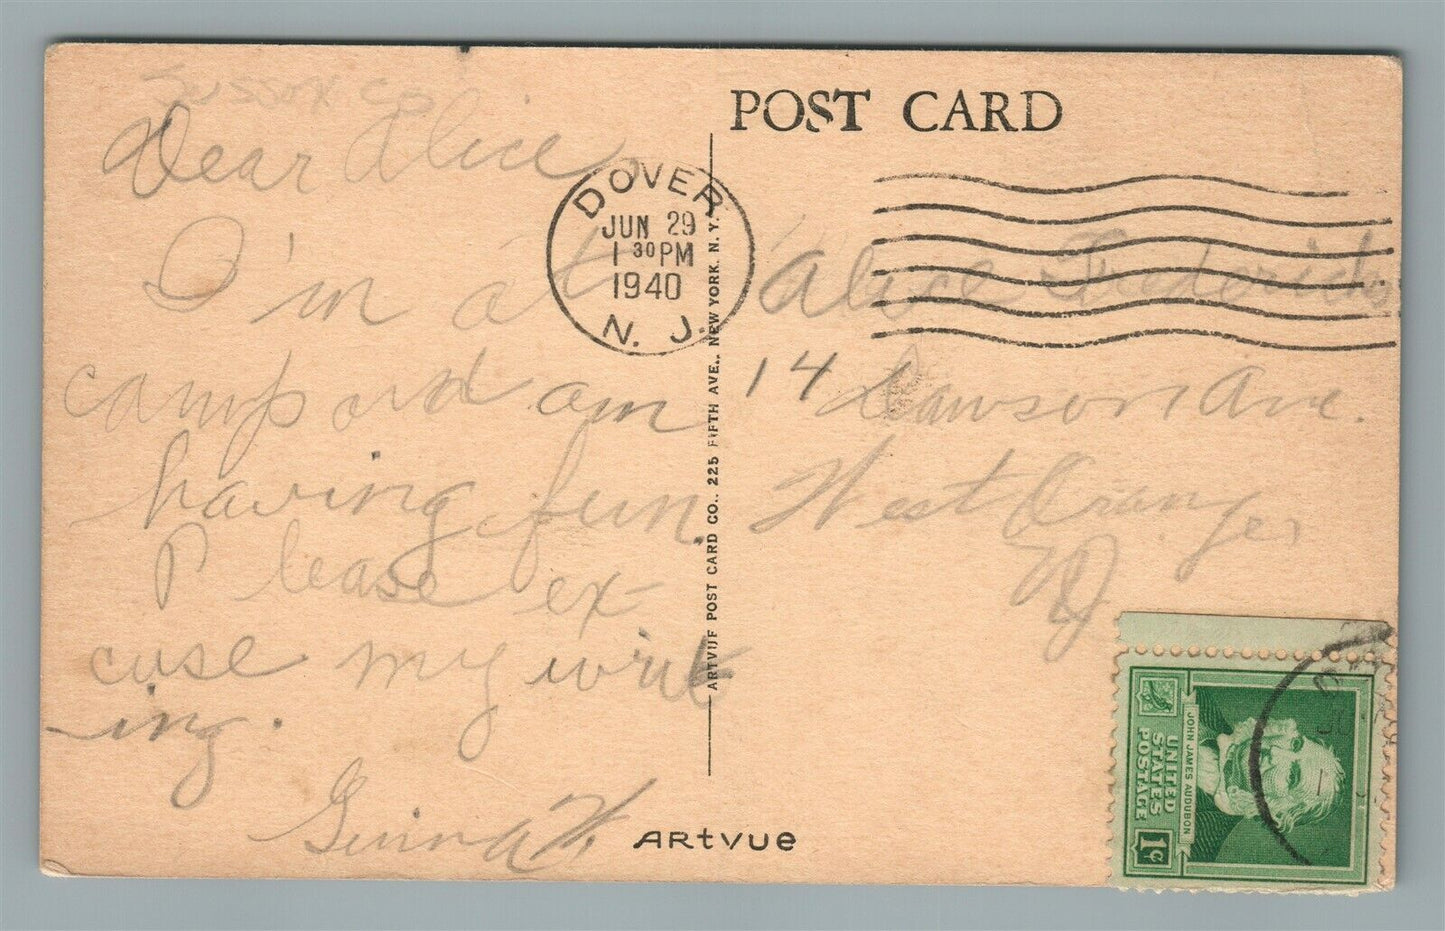 Sussex Co
Dear Alice,
I'm at
camp and am
having fun.
Please ex-
cuse my writ
-ing.
W.
POST CARD
DOVER
JUN 29
1 30 PM
1940
N. J.
Alice Fredericks
14 Dawson Ave.
West Orange,
NJ
ARTVUE POST CARD CO., 225 FIFTH AVE., NEW YORK, N. Y.
ARtVUE
JOHN JAMES AUDUBON
UNITED
STATES
POSTAGE
1¢